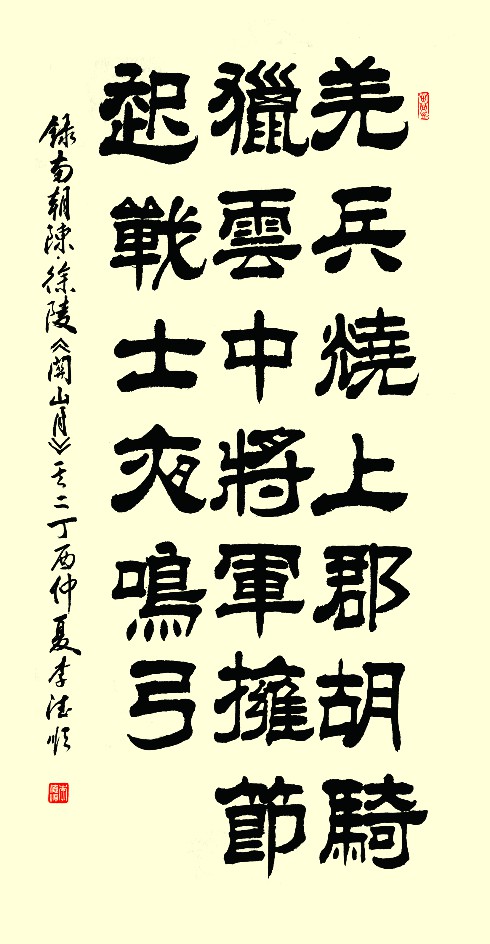 羌兵燒上郡胡騎
獵雲中將軍擁節
起戰士夜鳴弓
錄南朝陳·徐陵《關山月》其二丁酉仲夏李德順